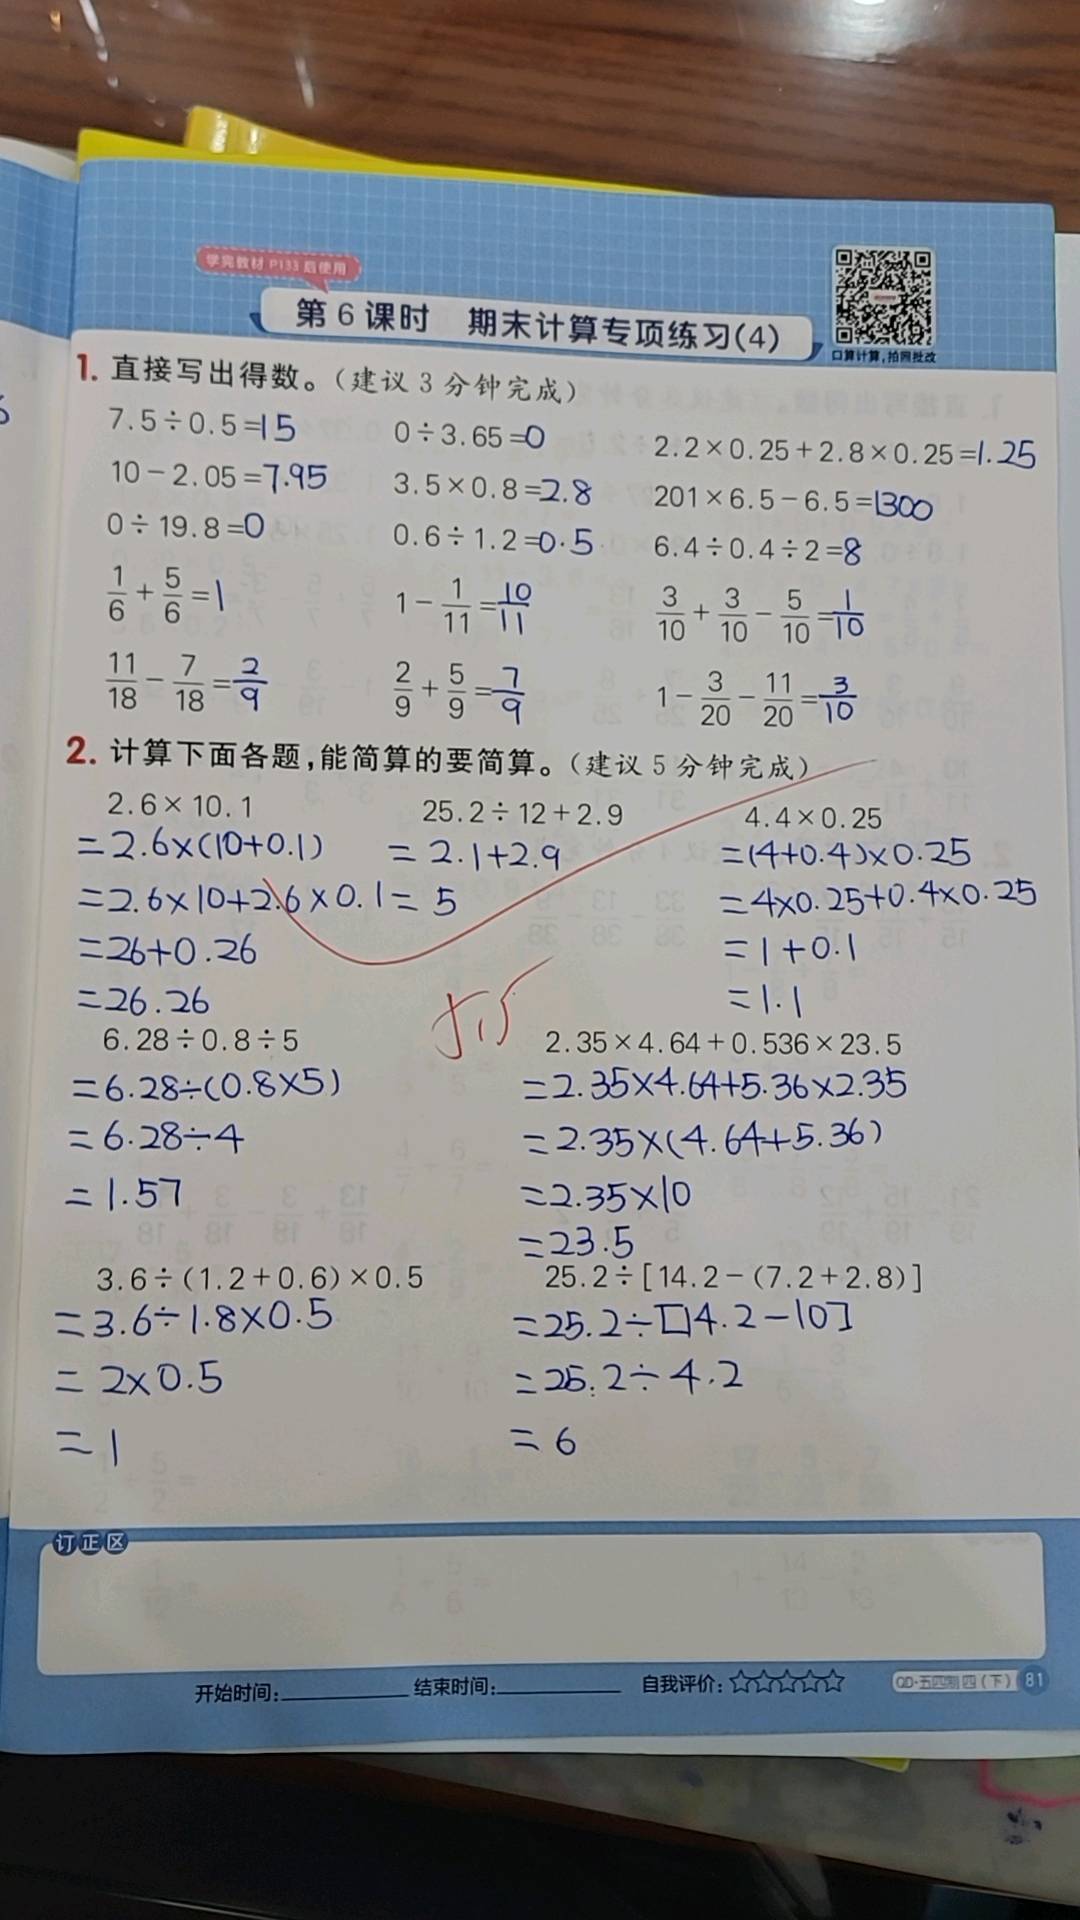 学完教材 P133 后使用
第 6 课时 期末计算专项练习(4)
口算计算,拍照批改
1. 直接写出得数。(建议 3 分钟完成)
7.5÷0.5=15 0÷3.65=0 2.2×0.25+2.8×0.25=1.25
10-2.05=7.95 3.5×0.8=2.8 201×6.5-6.5=1300
0÷19.8=0 0.6÷1.2=0.5 6.4÷0.4÷2=8
1/6+5/6=1 1-1/11=10/11 3/10+3/10-5/10=1/10
11/18-7/18=2/9 2/9+5/9=7/9 1-3/20-11/20=3/10
2. 计算下面各题,能简算的要简算。(建议 5 分钟完成)
2.6×10.1 25.2÷12+2.9 4.4×0.25
=2.6×(10+0.1) =2.1+2.9 =(4+0.4)×0.25
=2.6×10+2.6×0.1 =5 =4×0.25+0.4×0.25
=26+0.26 =1+0.1
=26.26 =1.1
6.28÷0.8÷5 2.35×4.64+0.536×23.5
=6.28÷(0.8×5) =2.35×4.64+5.36×2.35
=6.28÷4 =2.35×(4.64+5.36)
=1.57 =2.35×10
=23.5
3.6÷(1.2+0.6)×0.5 25.2÷[14.2-(7.2+2.8)]
=3.6÷1.8×0.5 =25.2÷[14.2-10]
=2×0.5 =25.2÷4.2
=1 =6
订正区
开始时间: 结束时间: 自我评价:☆☆☆☆☆ QD·五四制 四(下) 81